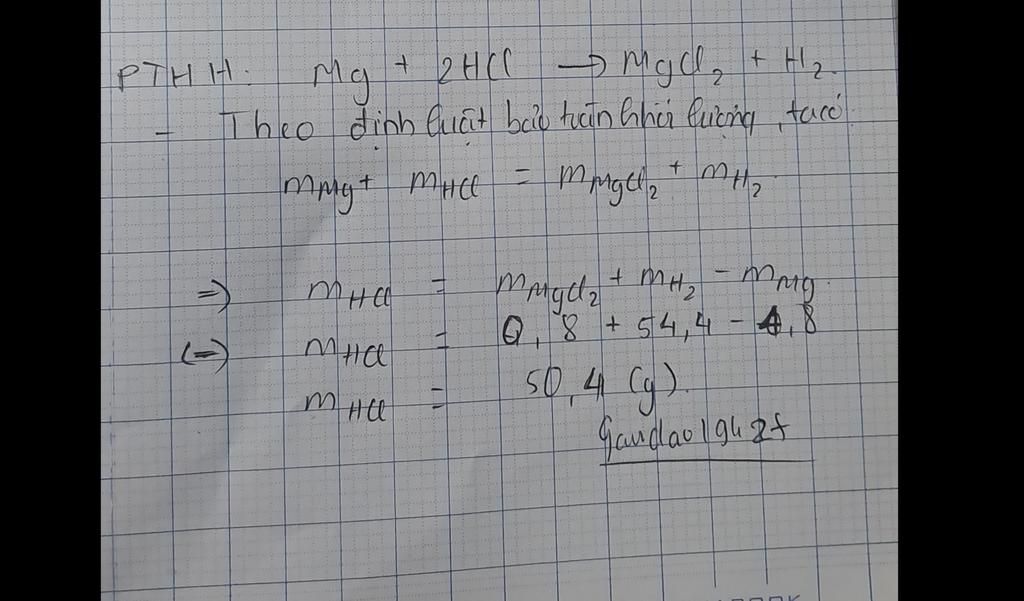 PTHH: Mg + 2HCl → MgCl₂ + H₂.
- Theo định luật bảo toàn khối lượng, ta có:
mMg + mHCl = mMgCl₂ + mH₂
=> mHCl = mMgCl₂ + mH₂ - mMg
(=) mHCl = 0,8 + 54,4 - 4,8
mHCl = 50,4 (g).